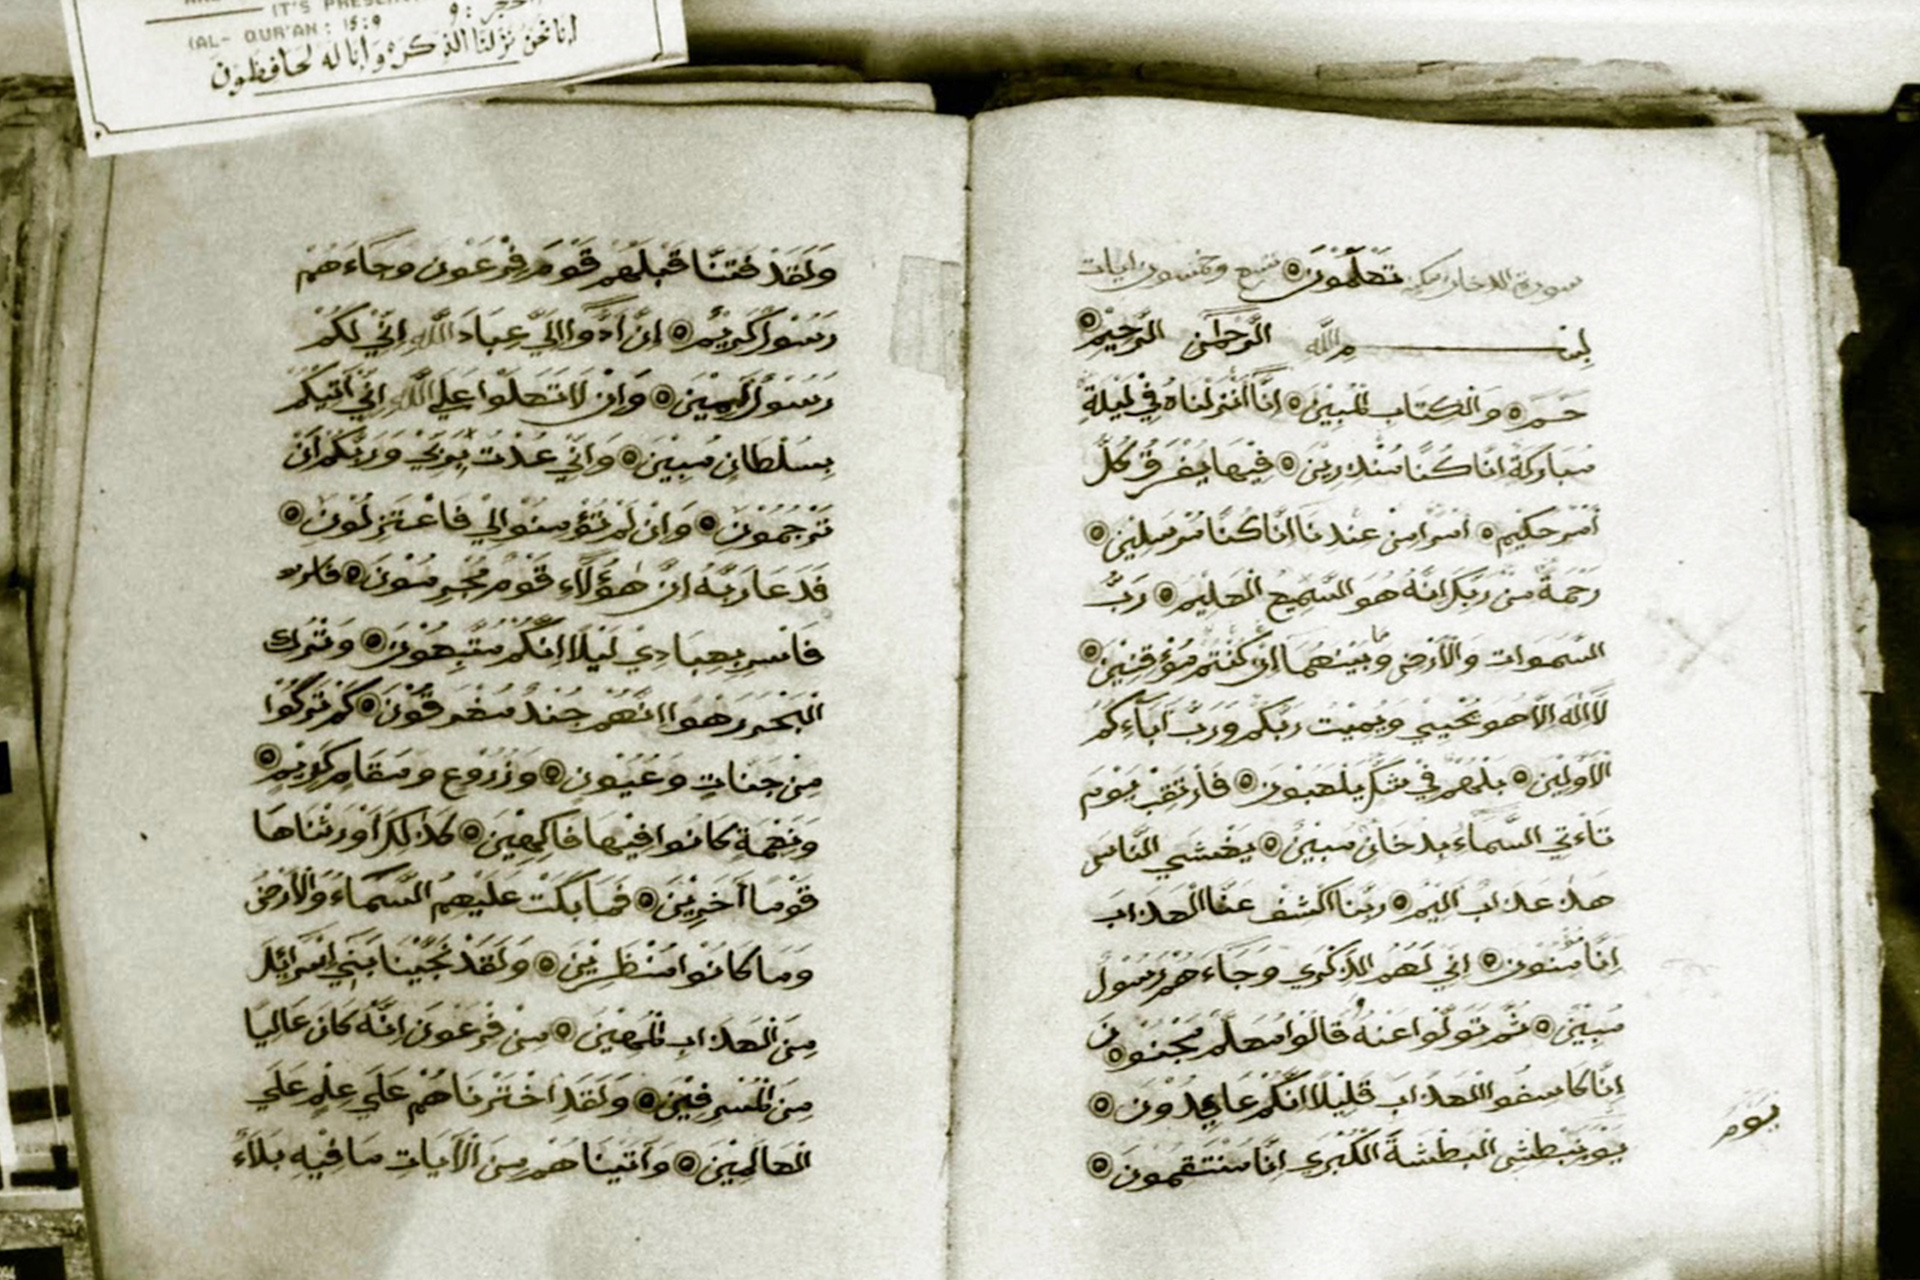 IT'S PRESE
الحجر : ٩
(AL- QUR'AN : 15:9
إنا نحن نزلنا الذكر وإنا له لحافظون
سورة الدخان مكية تَعْلَمُوْنَ تسع وخمسون ايات
بسم الله الرَّحْمٰنِ الرَّحِيْمِ
حـم والكِتَاب الْمُبِيْن اِنَّا اَنْزَلْنَاهُ فِيْ لَيْلَةٍ
مُبَارَكَةٍ اِنَّا كُنَّا مُنْذِرِيْن فِيْهَا يُفْرَقُ كُلُّ
اَمْرٍ حَكِيْم اَمْرًا مِنْ عِنْدِنَا اِنَّا كُنَّا مُرْسَلِيْن
رَحْمَةً مِنْ رَبِّكَ اِنَّهُ هُوَ السَّمِيْعُ الْعَلِيْم رَبّ
السَّمَوات وَالْاَرْض وَمَا بَيْنَهُمَا اِنْ كُنْتُمْ مُوْقِنِيْن
لَا اِلٰه اِلَّا هُوَ يُحْيِيْ وَيُمِيْت رَبُّكُمْ وَرَبُّ اٰبَآءِكُمُ
الْاَوَّلِيْن بَلْ هُمْ فِيْ شَكٍّ يَلْعَبُوْن فَارْتَقِبْ يَوْمَ
تَأْتِي السَّمَآءُ بِدُخَانٍ مُبِيْن يَغْشَي النَّاس
هٰذَا عَذَابٌ اَلِيْم رَبَّنَا اكْشِفْ عَنَّا الْعَذَاب
اِنَّا مُؤْمِنُوْن اَنّٰي لَهُمُ الذِّكْرٰي وَجَآءَهُمْ رَسُوْلٌ
مُبِيْن ثُمَّ تَوَلَّوْا عَنْهُ وَقَالُوْا مُعَلَّمٌ مَجْنُوْن
اِنَّا كَاشِفُوا الْعَذَابَ قَلِيْلًا اِنَّكُمْ عَائِدُوْنَ
يَوْمَ نَبْطِشُ الْبَطْشَةَ الْكُبْرٰي اِنَّا مُنْتَقِمُوْنَ
يَوْمَ
وَلَقَدْ فَتَنَّا قَبْلَهُمْ قَوْمَ فِرْعَوْنَ وَجَاءَهُمْ
رَسُوْلٌ كَرِيْمٌ اِنْ اَدُّوْا اِلَيَّ عِبَادَ اللّٰهِ اِنِّيْ لَكُمْ
رَسُوْلٌ اَمِيْنٌ وَاَنْ لَا تَعْلَوْا عَلَي اللّٰهِ اِنِّيْ اٰتِيْكُمْ
بِسُلْطَانٍ مُبِيْنٍ وَاِنِّيْ عُذْتُ بِرَبِّيْ وَرَبِّكُمْ اَنْ
تَرْجُمُوْنِ وَاِنْ لَمْ تُؤْمِنُوْا لِيْ فَاعْتَزِلُوْنِ
فَدَعَا رَبَّهُ اَنَّ هٰؤُلَآءِ قَوْمٌ مُجْرِمُوْنَ
فَاَسْرِ بِعِبَادِيْ لَيْلًا اِنَّكُمْ مُتَّبَعُوْنَ وَاتْرُك
الْبَحْرَ رَهْوًا اِنَّهُمْ جُنْدٌ مُغْرَقُوْنَ كَمْ تَرَكُوْا
مِنْ جَنَّاتٍ وَعُيُوْنٍ وَزُرُوْعٍ وَمَقَامٍ كَرِيْمٍ
وَنَعْمَةٍ كَانُوا فِيْهَا فَاكِهِيْنَ كَذٰلِكَ اَوْرَثْنَاهَا
قَوْمًا اٰخَرِيْنَ فَمَا بَكَتْ عَلَيْهِمُ السَّمَآءُ وَالْاَرْضُ
وَمَا كَانُوْا مُنْظَرِيْنَ وَلَقَدْ نَجَّيْنَا بَنِيْ اِسْرَائِلَ
مِنَ الْعَذَابِ الْمُهِيْنِ مِنْ فِرْعَوْنَ اِنَّهُ كَانَ عَالِيًا
مِنَ الْمُسْرِفِيْنَ وَلَقَدِ اخْتَرْنَاهُمْ عَلَي عِلْمٍ عَلَي
الْعَالَمِيْنَ وَاٰتَيْنَاهُمْ مِنَ الْاٰيَاتِ مَا فِيْهِ بَلَآءٌ